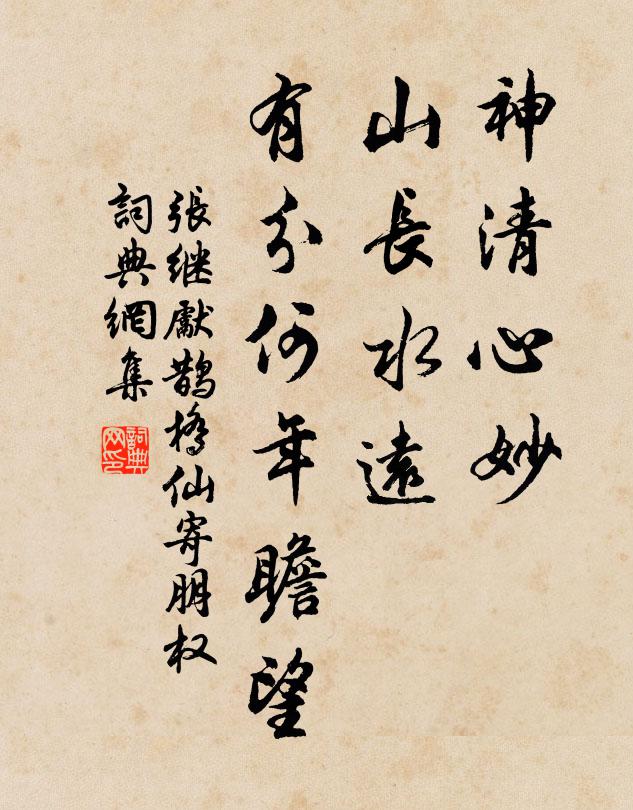 神清心妙
山長水遠
有分何年瞻望
張継獻鵲橋仙寄朋权
詞典網集
詞典网印